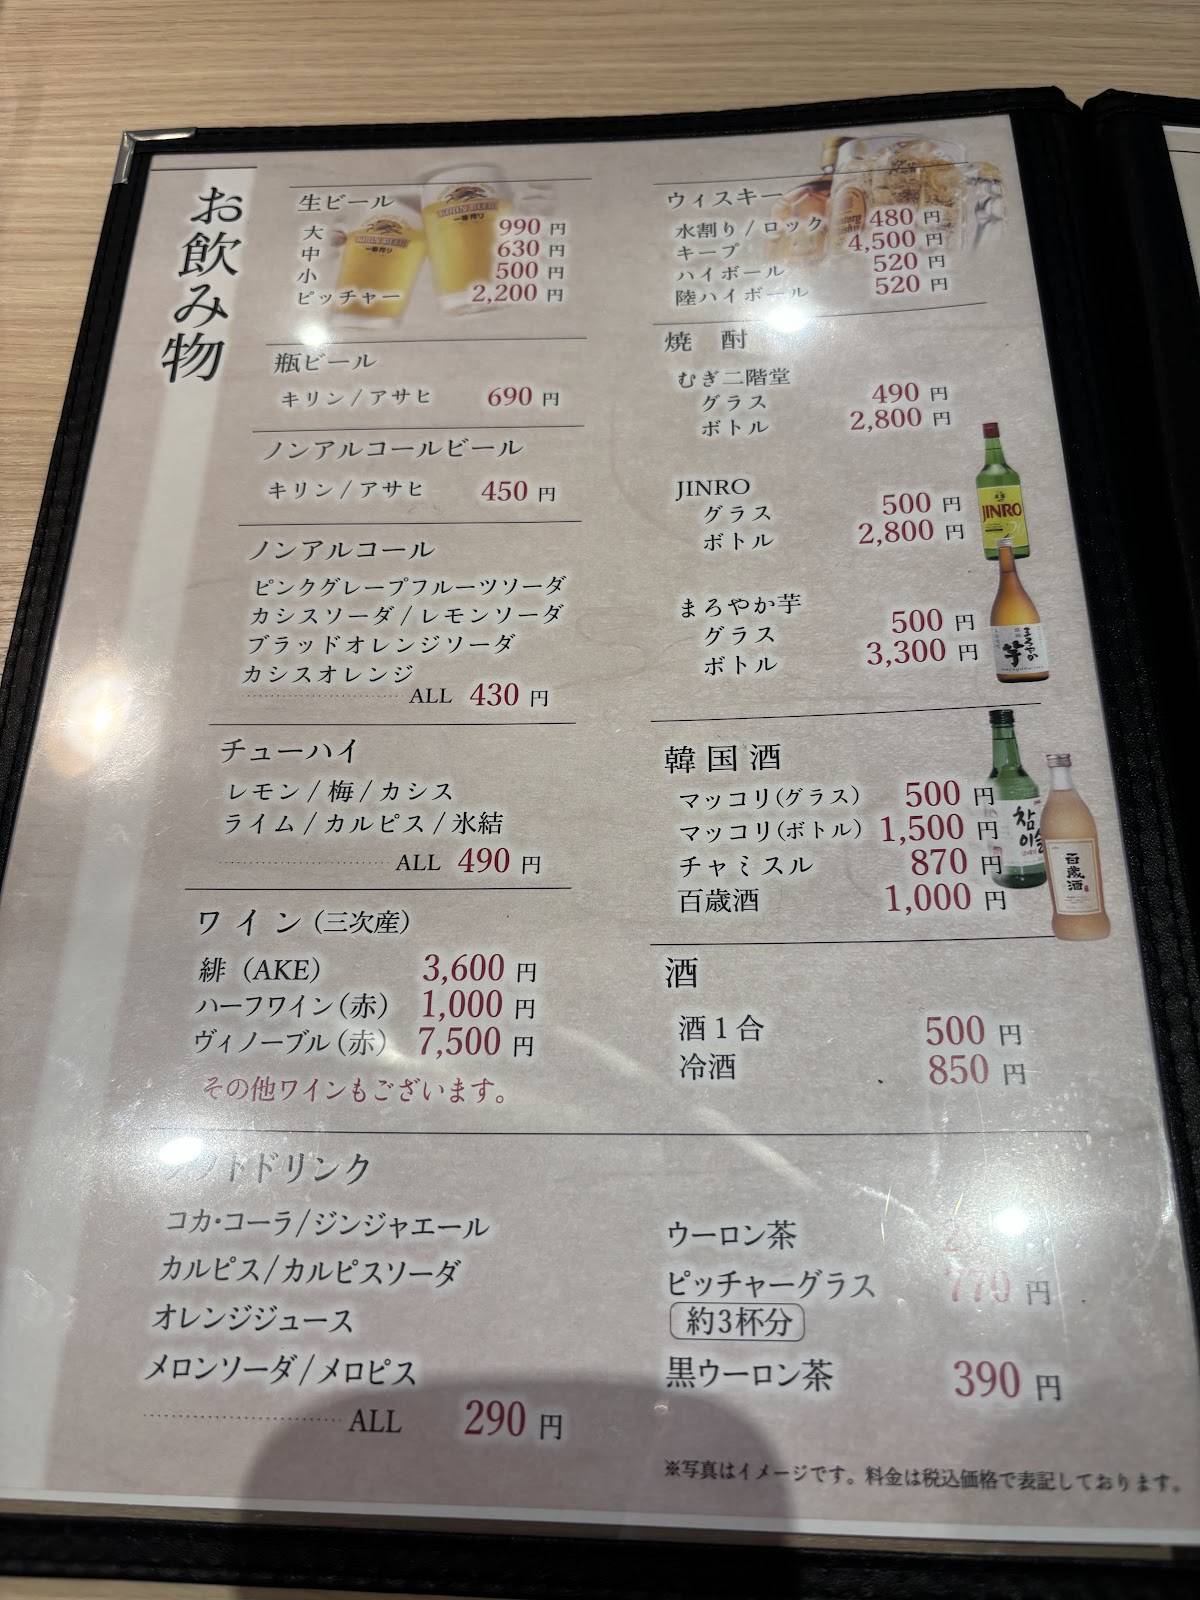 お飲み物
生ビール
大 990 円
中 630 円
小 500 円
ピッチャー 2,200 円
瓶ビール
キリン/アサヒ 690 円
ノンアルコールビール
キリン/アサヒ 450 円
ノンアルコール
ピンクグレープフルーツソーダ
カシスソーダ/レモンソーダ
ブラッドオレンジソーダ
カシスオレンジ
ALL 430 円
チューハイ
レモン/梅/カシス
ライム/カルピス/氷結
ALL 490 円
ワイン(三次産)
緋 (AKE) 3,600 円
ハーフワイン(赤) 1,000 円
ヴィノーブル(赤) 7,500 円
その他ワインもございます。
ウィスキー
水割り/ロック 480 円
キープ 4,500 円
ハイボール 520 円
陸ハイボール 520 円
焼酎
むぎ二階堂
グラス 490 円
ボトル 2,800 円
JINRO
グラス 500 円
ボトル 2,800 円
JINRO
まろやか芋
グラス 500 円
ボトル 3,300 円
まろやか芋
韓国酒
マッコリ(グラス) 500 円
マッコリ(ボトル) 1,500 円
チャミスル 870 円
百歳酒 1,000 円
참이슬
百歳酒
酒
酒1合 500 円
冷酒 850 円
フトドリンク
コカ・コーラ/ジンジャエール
カルピス/カルピスソーダ
オレンジジュース
メロンソーダ/メロピス
ALL 290 円
ウーロン茶
ピッチャーグラス 770 円
約3杯分
黒ウーロン茶 390 円
※写真はイメージです。料金は税込価格で表記しております。